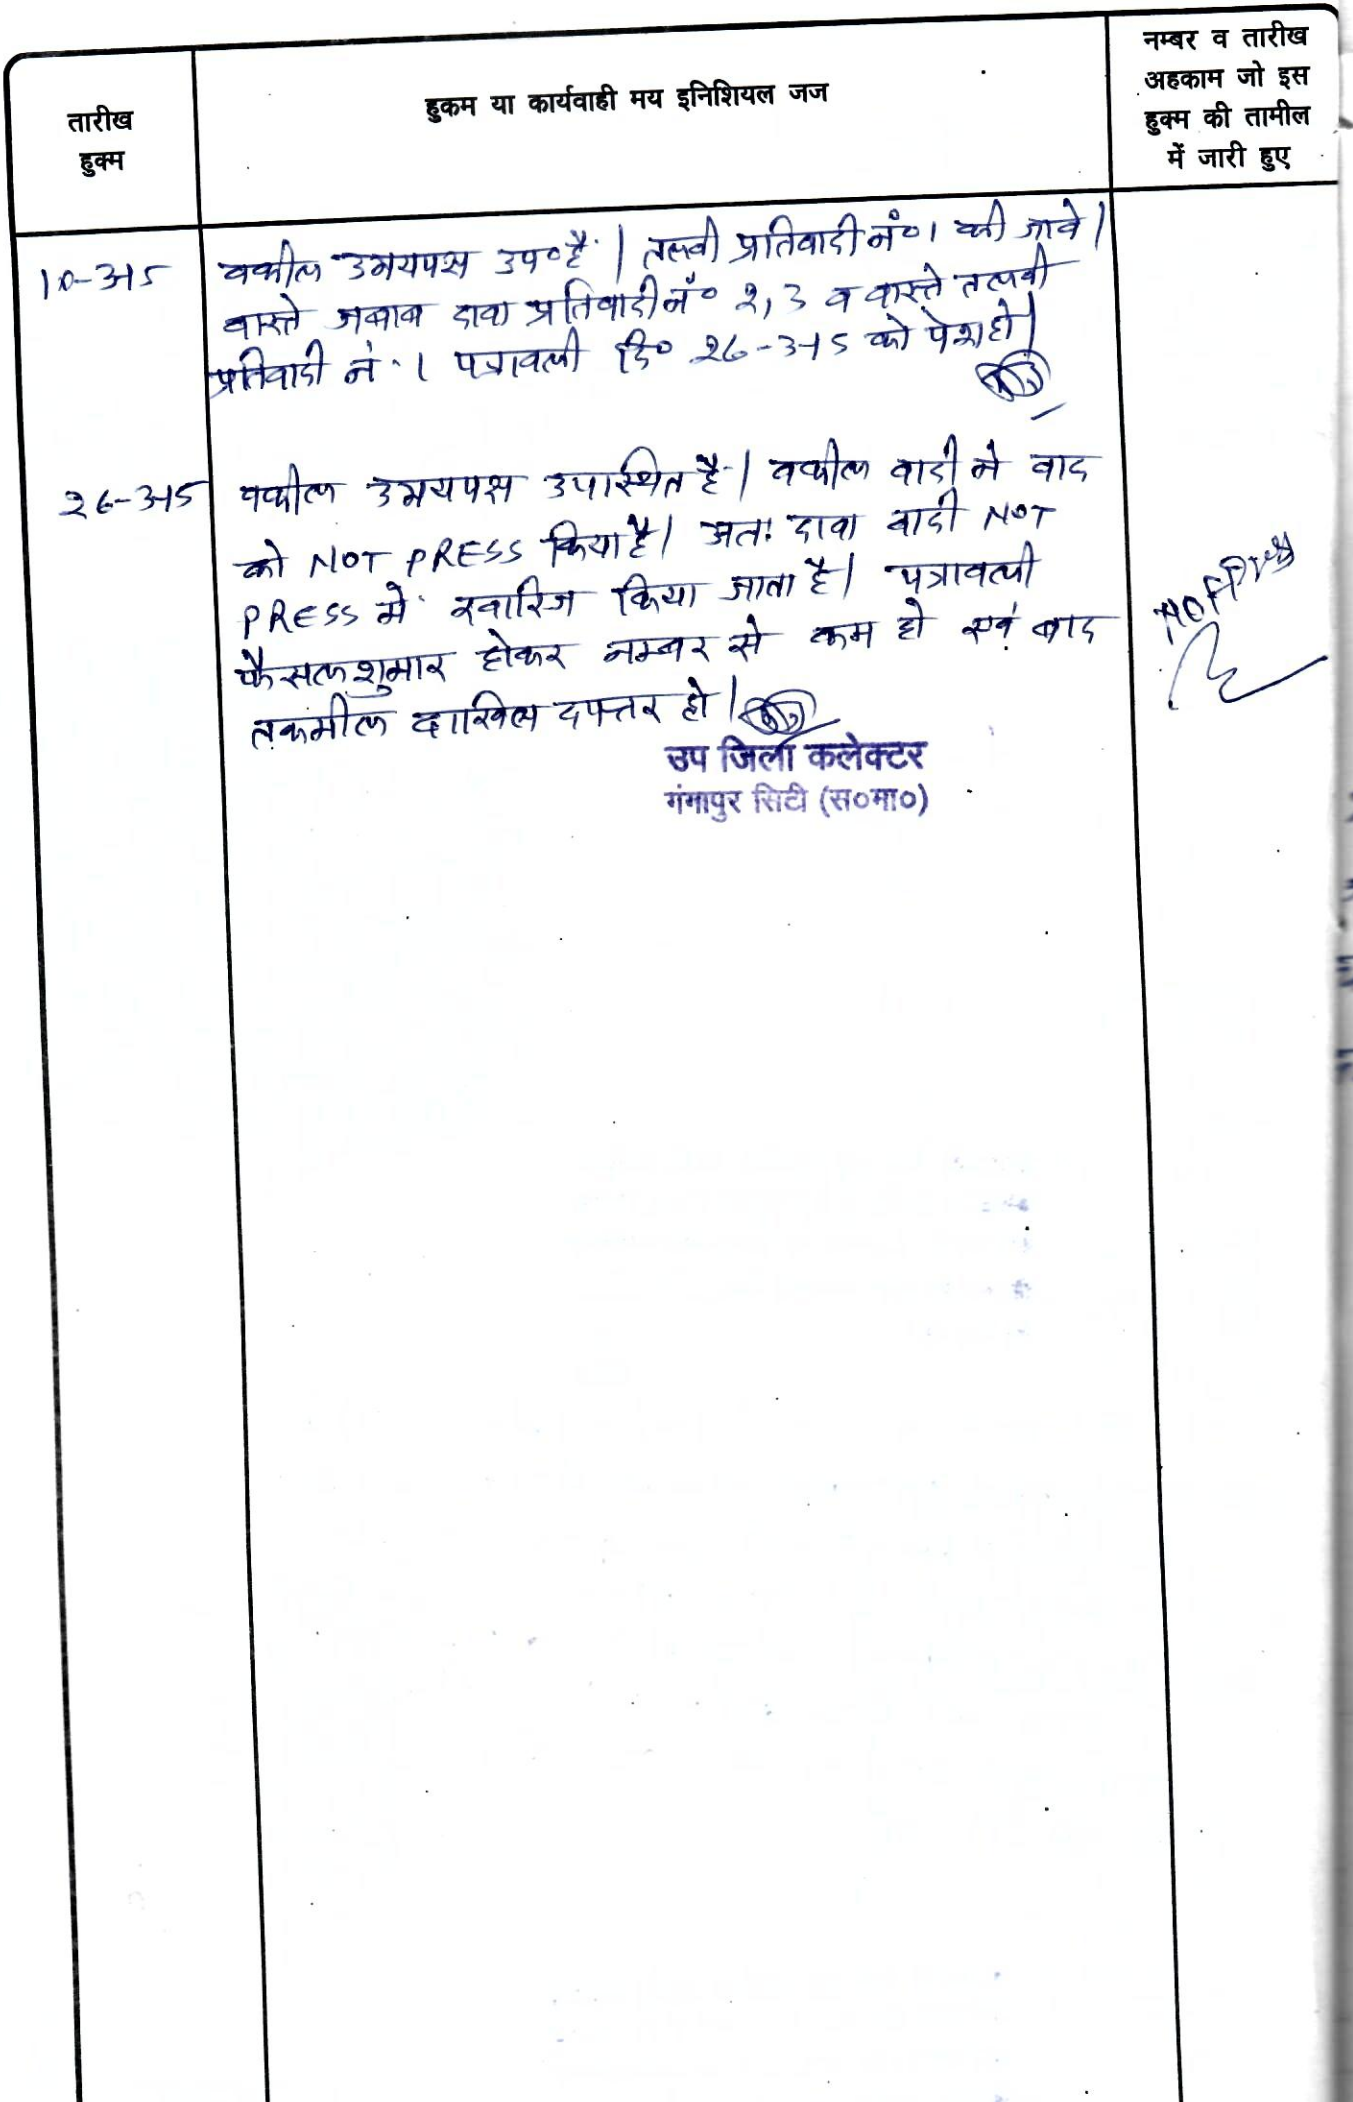 तारीख
हुक्म
हुकम या कार्यवाही मय इनिशियल जज
नम्बर व तारीख
अहकाम जो इस
हुक्म की तामील
में जारी हुए
10-3-15
वकील उभयपक्ष उप० है। तलवी प्रतिवादी नं० 1 की जावे।
वास्ते जबाब दावा प्रतिवादी नं० 2, 3 व वास्ते तलवी
प्रतिवादी नं. 1 पत्रावली दि० 26-3-15 को पेश हो।
26-3-15
वकील उभयपक्ष उपास्थित है। वकील वादी ने वाद
को NOT PRESS किया है। अतः दावा वादी NOT
PRESS में खारिज किया जाता है। पत्रावली
फैसलशुमार होकर नम्बर से कम हो एवं बाद
तकमील दाखिल दफ्तर हो।
उप जिला कलेक्टर
गंगापुर सिटी (स०मा०)
Not Press